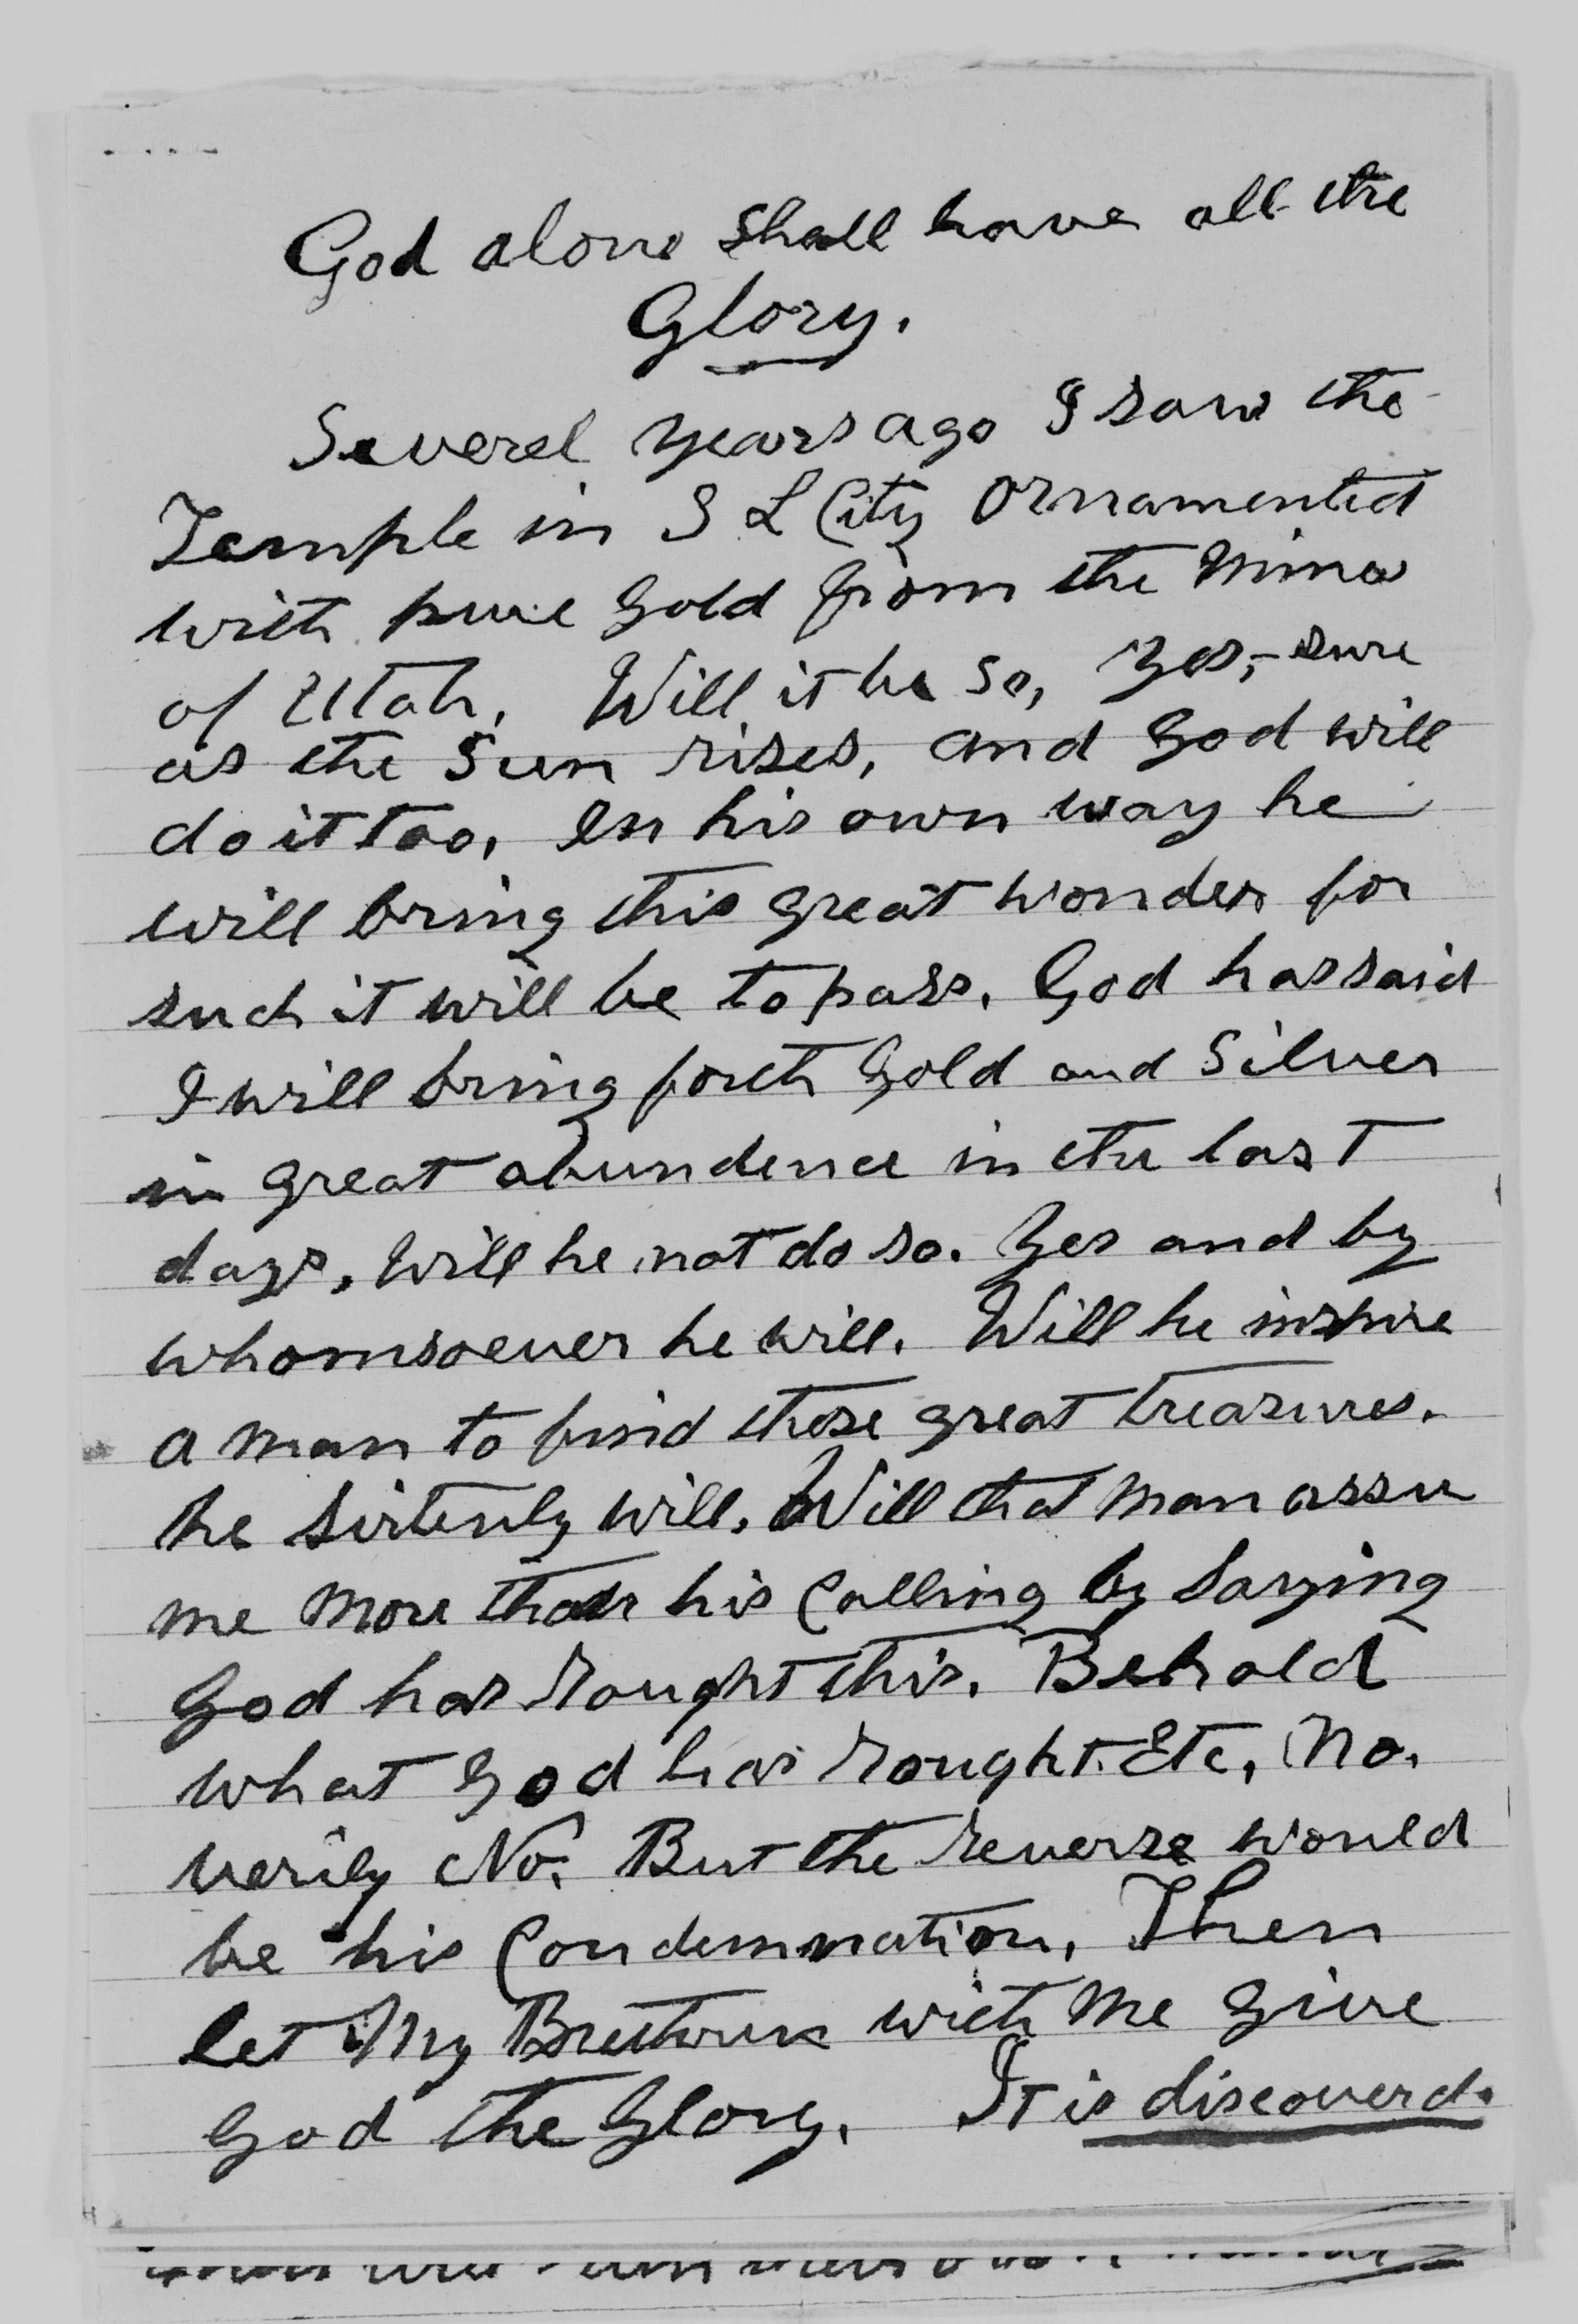 God alone Shall have all the
Glory.
Severel years ago I saw the
Temple in S L City Ornamented
with pure Gold from the Mines
of Utah. Will it be so, Yes, - sure
as the Sun rises, and God will
do it too, In his own way he
will bring this great wonder for
such it will be to pass. God has said
I will bring forth Gold and Silver
in great abundence in the last
days, Will he not do so. Yes and by
whomsoever he will. Will he inspire
a man to find those great treasures.
he sirtenly will. Will that man assu
me more than his Calling by Saying
God has rought this. Behold
what God has rought. Etc, No.
verily No. But the reverse would
be his Condemnation, Then
let My Brethren with me give
God the Glory. It is discoverd.